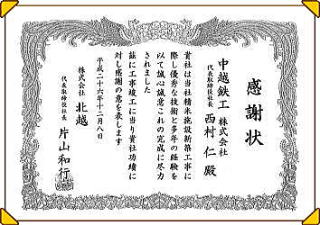 感謝状
中越鉄工 株式会社
代表取締役社長 西村 仁 殿
貴社は当社精米施設新築工事に
際し優秀な技術と多年の経験を
以て誠心誠意これの完成に尽力
されました
茲に工事竣工に当り貴社功績に
対し感謝の意を表します
平成二十六年十二月八日
株式会社 北越
代表取締役社長 片山和行